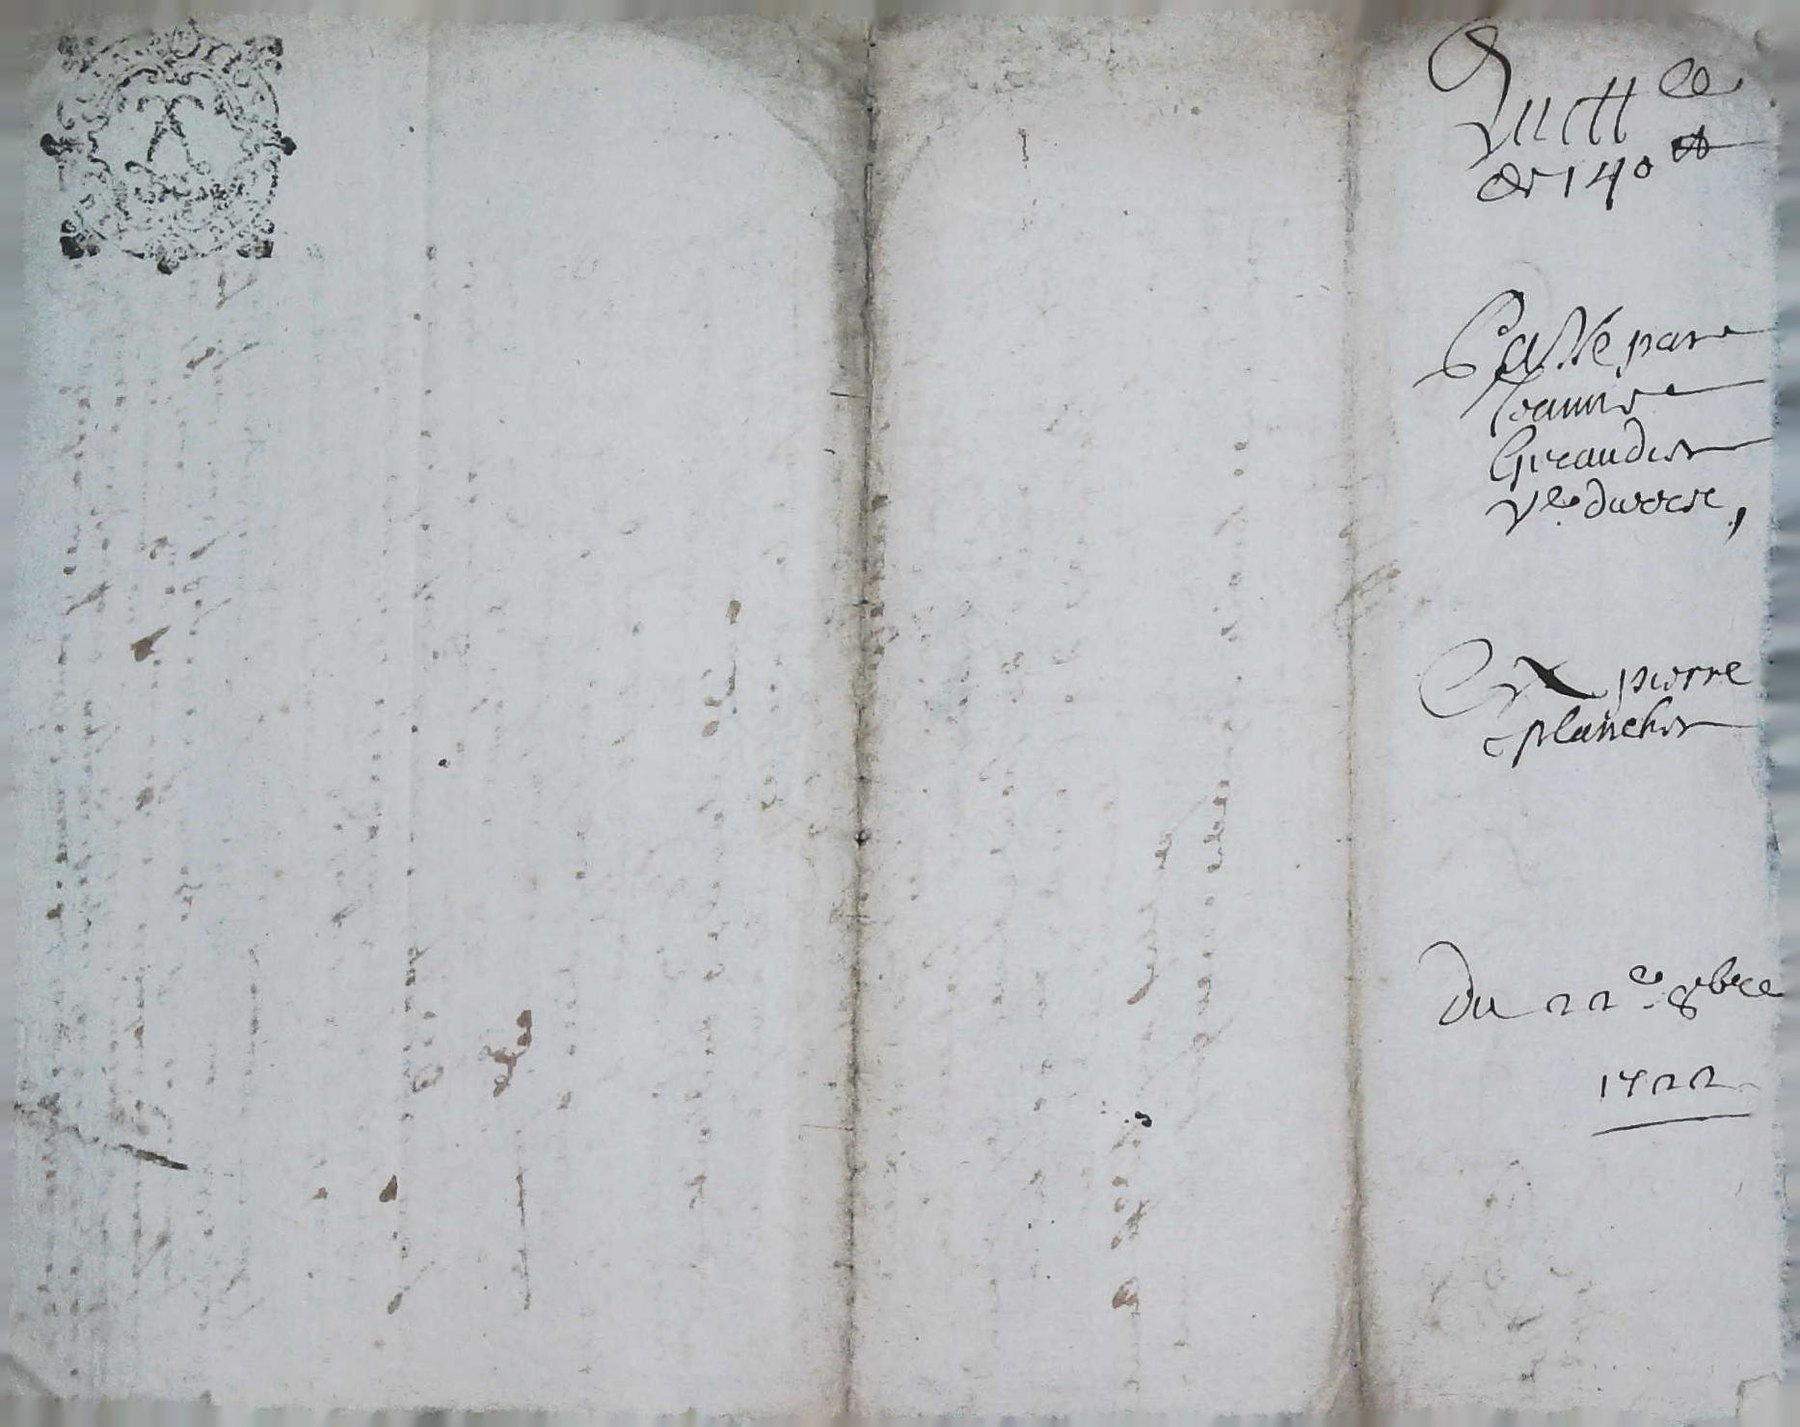 Quitt ce
de 140 ₶
Passé par
Jeanne
Giraudier
Ve
Et pierre
plancher
Du 22e 8bre
1722